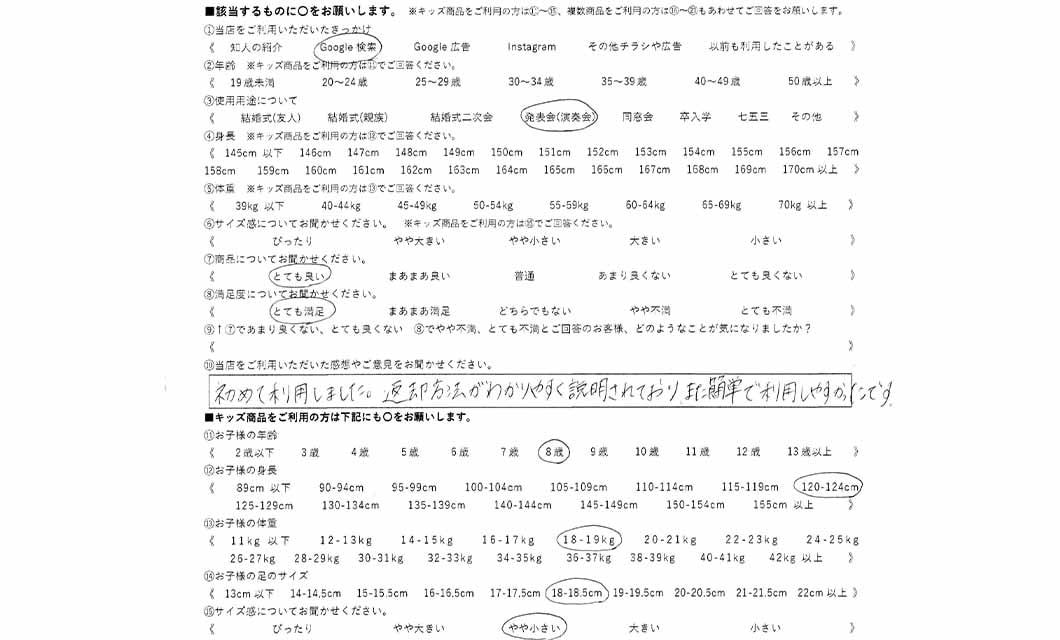 ■該当するものに〇をお願いします。 ※キッズ商品をご利用の方は⑪～⑮、複数商品をご利用の方は⑯～㉑もあわせてご回答をお願いします。
①当店をご利用いただいたきっかけ
《 知人の紹介 Google 検索 Google 広告 Instagram その他チラシや広告 以前も利用したことがある 》
②年齢 ※キッズ商品をご利用の方は⑪でご回答ください。
《 19歳未満 20～24歳 25～29歳 30～34歳 35～39歳 40～49歳 50歳以上 》
③使用用途について
《 結婚式(友人) 結婚式(親族) 結婚式二次会 発表会(演奏会) 同窓会 卒入学 七五三 その他 》
④身長 ※キッズ商品をご利用の方は⑫でご回答ください。
《 145cm 以下 146cm 147cm 148cm 149cm 150cm 151cm 152cm 153cm 154cm 155cm 156cm 157cm
158cm 159cm 160cm 161cm 162cm 163cm 164cm 165cm 166cm 167cm 168cm 169cm 170cm 以上 》
⑤体重 ※キッズ商品をご利用の方は⑬でご回答ください。
《 39kg 以下 40-44kg 45-49kg 50-54kg 55-59kg 60-64kg 65-69kg 70kg 以上 》
⑥サイズ感についてお聞かせください。 ※キッズ商品をご利用の方は⑮でご回答ください。
《 ぴったり やや大きい やや小さい 大きい 小さい 》
⑦商品についてお聞かせください。
《 とても良い まあまあ良い 普通 あまり良くない とても良くない 》
⑧満足度についてお聞かせください。
《 とても満足 まあまあ満足 どちらでもない やや不満 とても不満 》
⑨↑⑦であまり良くない、とても良くない ⑧でやや不満、とても不満とご回答のお客様、どのようなことが気になりましたか？
《 》
⑩当店をご利用いただいた感想やご意見をお聞かせください。
初めて利用しました。返却方法がわかりやすく説明されており、また簡単で利用しやすかったです
■キッズ商品をご利用の方は下記にも〇をお願いします。
⑪お子様の年齢
《 2歳以下 3歳 4歳 5歳 6歳 7歳 8歳 9歳 10歳 11歳 12歳 13歳以上 》
⑫お子様の身長
《 89cm 以下 90-94cm 95-99cm 100-104cm 105-109cm 110-114cm 115-119cm 120-124cm
125-129cm 130-134cm 135-139cm 140-144cm 145-149cm 150-154cm 155cm 以上 》
⑬お子様の体重
《 11kg 以下 12-13kg 14-15kg 16-17kg 18-19kg 20-21kg 22-23kg 24-25kg
26-27kg 28-29kg 30-31kg 32-33kg 34-35kg 36-37kg 38-39kg 40-41kg 42kg 以上 》
⑭お子様の足のサイズ
《 13cm 以下 14-14.5cm 15-15.5cm 16-16.5cm 17-17.5cm 18-18.5cm 19-19.5cm 20-20.5cm 21-21.5cm 22cm 以上 》
⑮サイズ感についてお聞かせください。
《 ぴったり やや大きい やや小さい 大きい 小さい 》